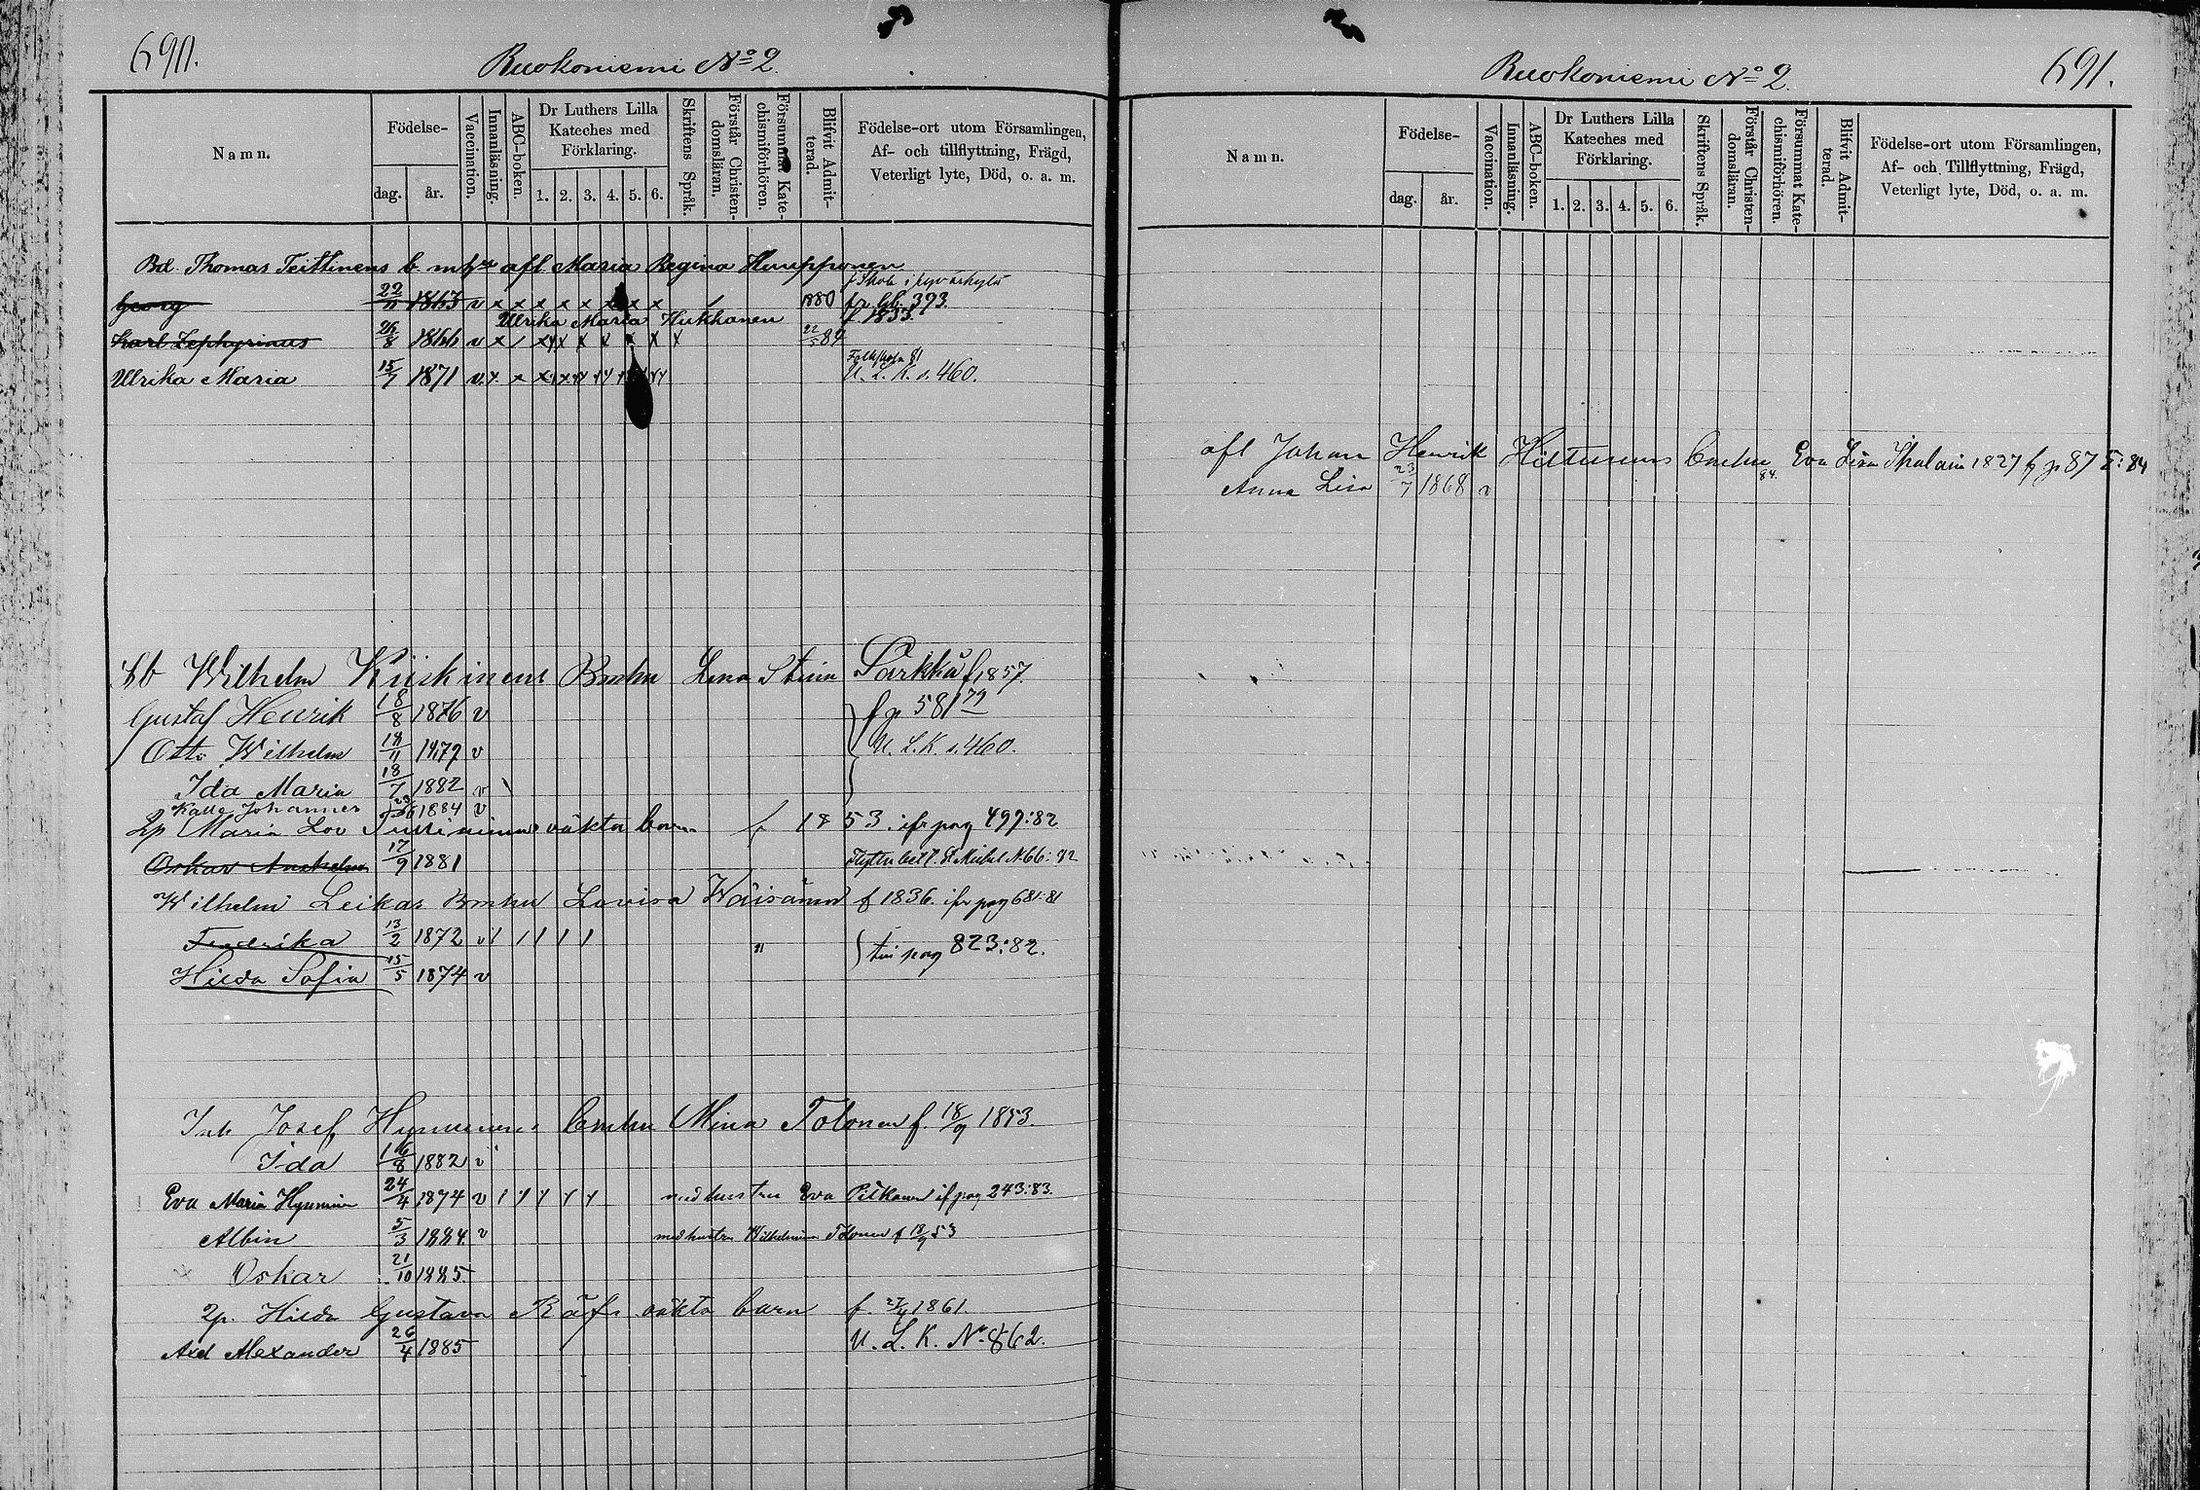 690.
Ruokoniemi No 2.
Namn.
Födelse-
dag.
år.
Vaccination.
Innanläsning.
ABC-boken.
Dr Luthers Lilla
Kateches med
Förklaring.
1. 2. 3. 4. 5. 6.
Skriftens Språk.
Förstår Christen-
domsläran.
Försummat Kate-
chismiförhören.
Blifvit Admit-
terad.
Födelse-ort utom Församlingen,
Af- och tillflyttning, Frägd,
Veterligt lyte, Död, o. a. m.
Bd. Thomas Teittinens b. afl Maria Regina Hempponen
Georg 22/11 1863 v x x x x x x x x / 1880 fr. lb. 393.
Ulrika Maria Hukkanen f. 1853.
Karl Zephyrinus 26/8 1866 v x / x x x x x x x 22/5 84
Folkskola 81
Ulrika Maria 15/7 1871 v. U. L. K. s. 460.
Wilhelm Kiiskinens Bmhu Lena Stina Särkkä f 1857.
Gustaf Henrik 18/8 1876 v f p 581 79
Otto Wilhelm 18/11 1879 v U. L. K. s. 460.
Ida Maria 18/7 1882 v
Kalle Johannes 1884 v
Qp Maria Lov oäkta barn f 1853. ifr pag 499:82
Oskar 17/9 1881 St Michel N. 66: 92
Wilhelm Leikas Bmhu Lovisa Wäisänen f 1836. ifr pag 681:81
Fredrika 13/2 1872 v / / / / /
Hilda Sofia 15/5 1874 v pag 823:82.
Inh Josef Hynninens bmhu Mina Tolonen f. 18/9 1853.
Ida 16/8 1882 v
Eva Maria Hynninen 24/4 1874 v med hustru Eva Pitkänen if pag 243:83.
Albin 5/3 1884. v med hustru Wilhelmina Tolonen f 18/9 53
Oskar 21/10 1885.
Qp. Hilda Gustava Räfs oäkta barn f. 1861.
Axel Alexander 26/4 1885 U. L. K. No 862.
691.
Ruokoniemi No 2.
Namn.
Födelse-
dag.
år.
Vaccination.
Innanläsning.
ABC-boken.
Dr Luthers Lilla
Kateches med
Förklaring.
1. 2. 3. 4. 5. 6.
Skriftens Språk.
Förstår Christen-
domsläran.
Försummat Kate-
chismiförhören.
Blifvit Admit-
terad.
Födelse-ort utom Församlingen,
Af- och Tillflyttning, Frägd,
Veterligt lyte, Död, o. a. m.
afl Johan Henrik Hiltunens Eva Lisa 1827 f p 87 I: 84
Anna Lisa 23/7 1868 v